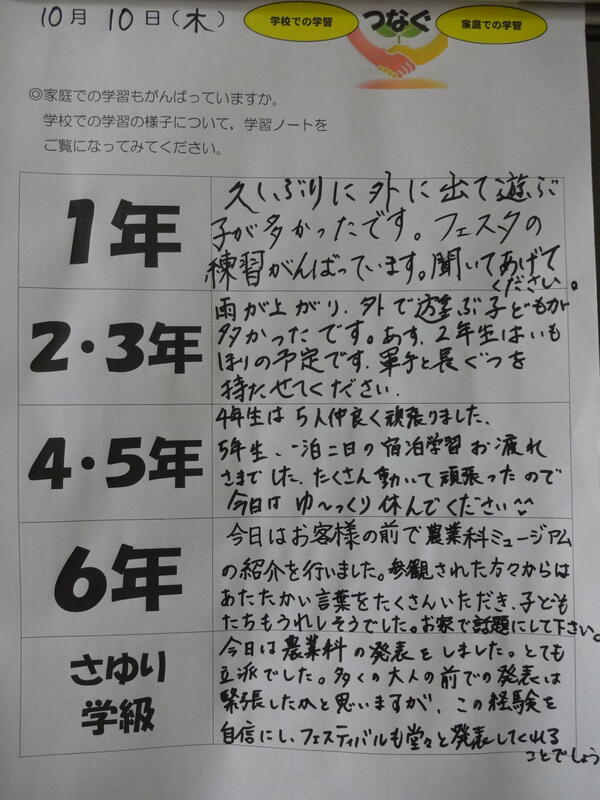 10月10日(木)
学校での学習
つなぐ
家庭での学習
◎家庭での学習もがんばっていますか。
学校での学習の様子について，学習ノートを
ご覧になってみてください。
1年
久しぶりに外に出て遊ぶ
子が多かったです。フェスタの
練習がんばっています。聞いてあげて
ください。
2・3年
雨が上がり、外で遊ぶ子どもが
多かったです。あす、2年生はいも
ほりの予定です。軍手と長ぐつを
持たせてください。
4・5年
4年生は5人仲良く頑張りました。
5年生、一泊二日の宿泊学習お疲れ
さまでした。たくさん動いて頑張ったので
今日はゆ～っくり休んでください^^
6年
今日はお客様の前で農業科ミュージアム
の紹介を行いました。参観された方々からは
あたたかい言葉をたくさんいただき、子ども
たちもうれしそうでした。お家で話題にして下さい。
さゆり
学級
今日は農業科の発表をしました。とても
立派でした。多くの大人の前での発表は
緊張したかと思いますが、この経験を
自信にし、フェスティバルも堂々と発表してくれる
ことでしょう